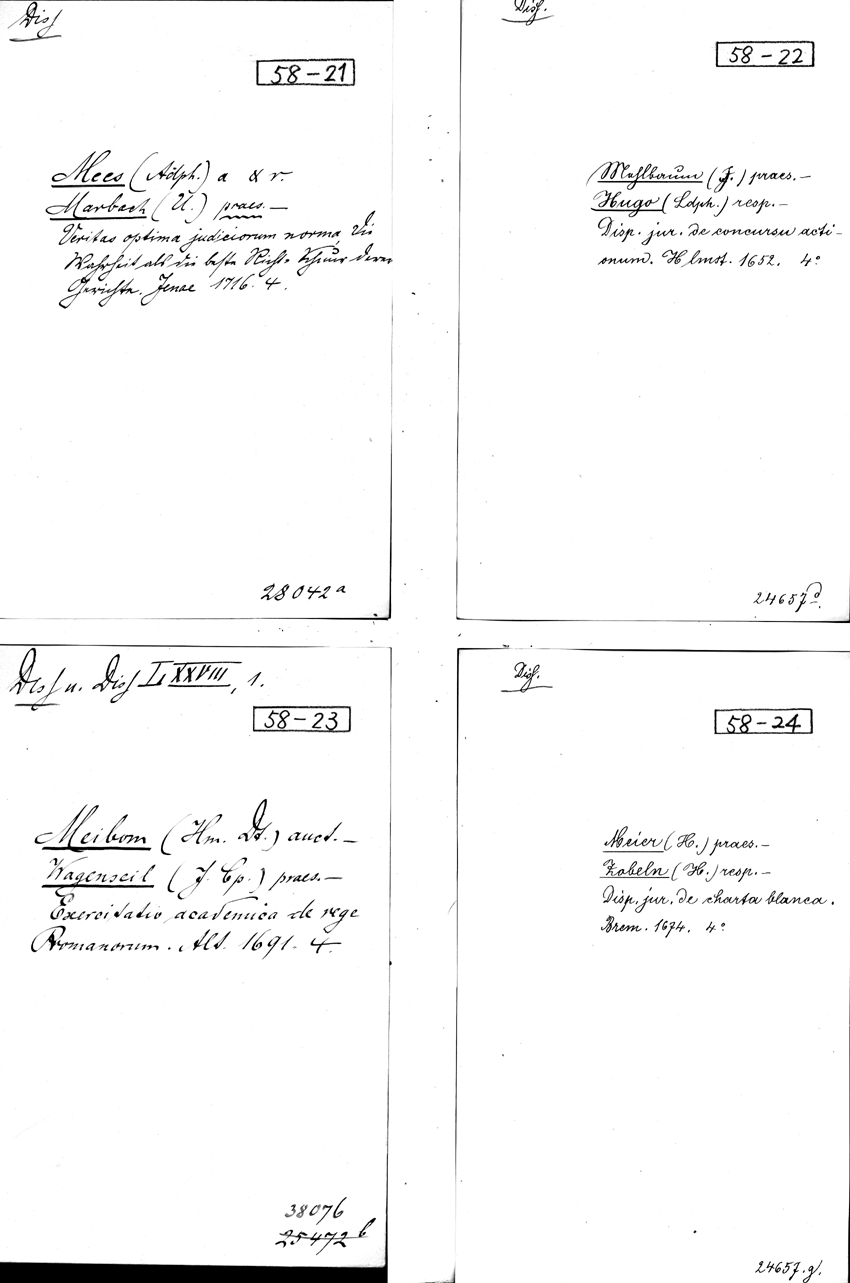 Diss
58-21
Mees (Adph.) a & r.
Marbach (U.) praes. —
Veritas optima judiciorum norma, Die
Wahrheit als die beste Richt-Schnur derer
Gerichte. Jenae 1716. 4.
28042a
Diss.
58-22
Mehlbaum (J.) praes. —
Hugo (Ldph.) resp. —
Disp. jur. de concursu acti-
onum. Hlmst. 1652. 4°
24657d.
Diss u. Diss LXXVIII, 1.
58-23
Meibom (Hm. Dt.) auct. —
Wagenseil (J. Cp.) praes. —
Exercitatio academica de rege
Romanorum. Alt. 1691. 4.
38076
25472b
Diss.
58-24
Meier (H.) praes. —
Zobeln (H.) resp. —
Disp. jur. de charta blanca.
Brem. 1674. 4°
24657.g.